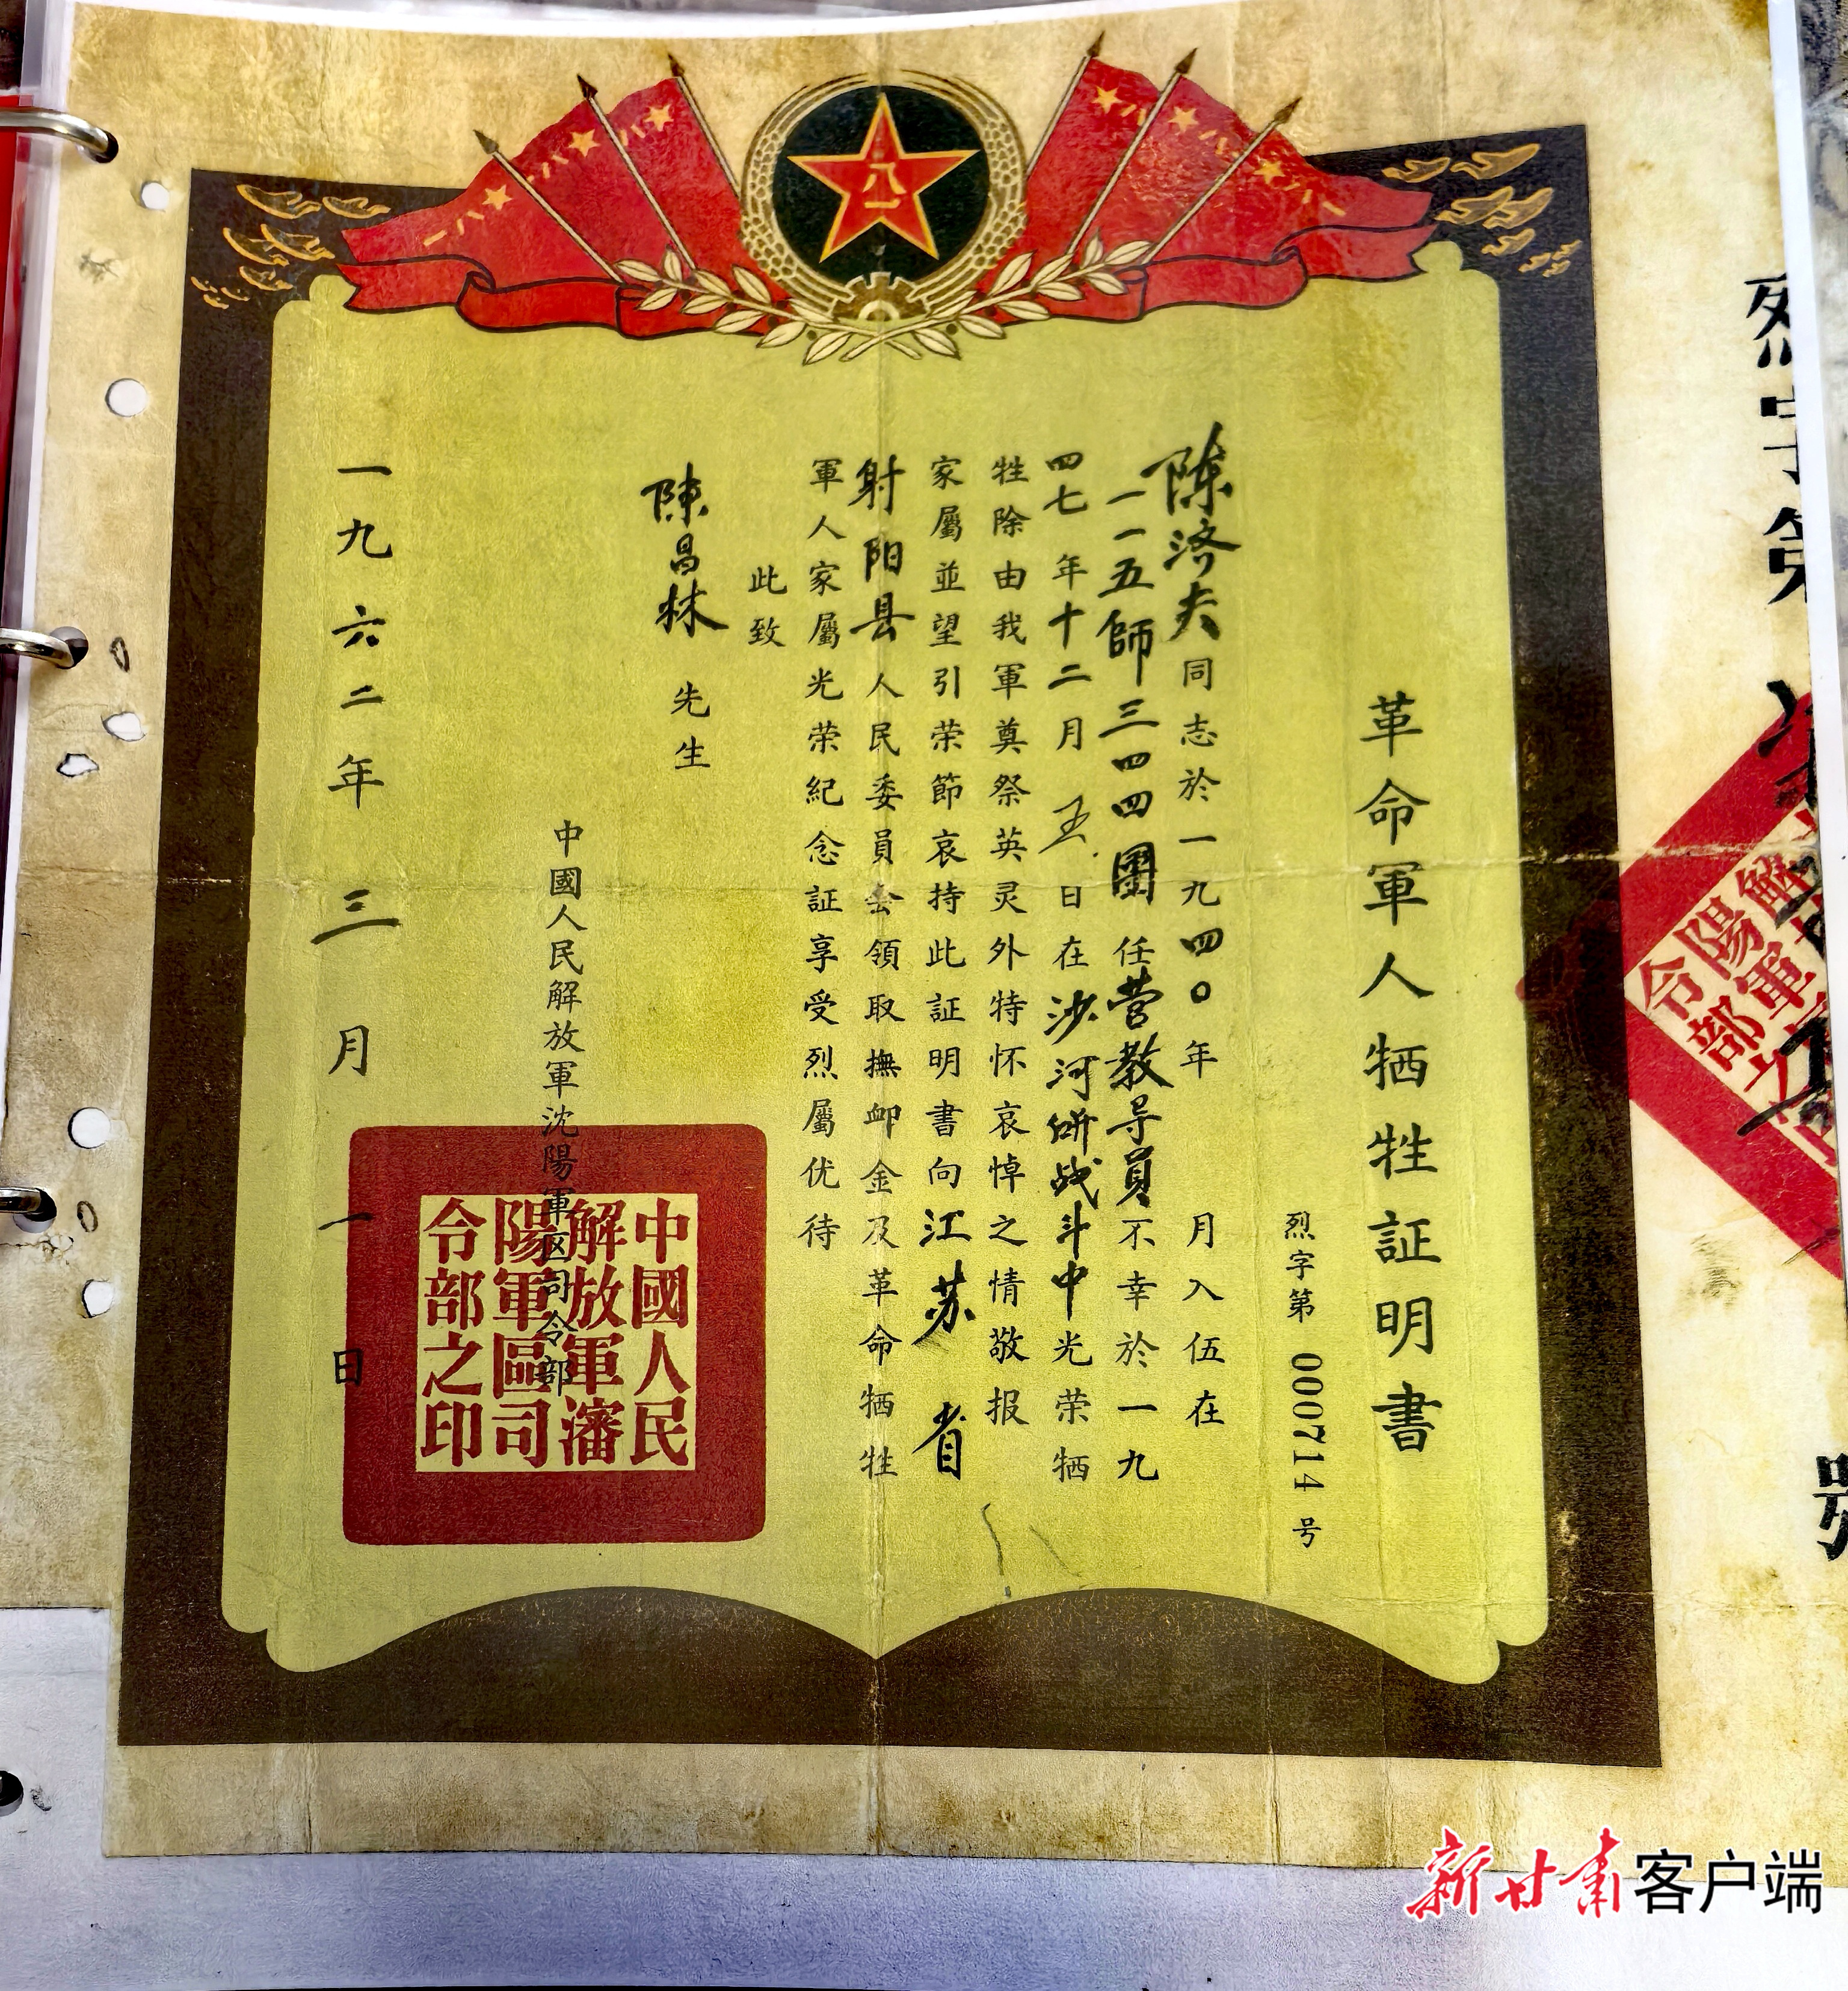 革命軍人牺牲証明書
烈字第 000714 号
陳济夫同志於一九四〇年 月入伍在
一一五師三四四團任营教导員不幸於一九
四七年十二月五日在沙河研战斗中光荣牺
牲除由我軍奠祭英灵外特怀哀悼之情敬报
家屬並望引荣節哀持此証明書向江苏省
射阳县人民委員会領取撫卹金及革命牺牲
軍人家屬光荣紀念証享受烈屬优待
此致
陳昌林 先生
中國人民解放軍沈陽軍区司令部
一九六二年三月一日
中國人民
解放軍瀋
陽軍區司
令部之印
八一
烈字第
號
陽軍
令部
新甘肃客户端